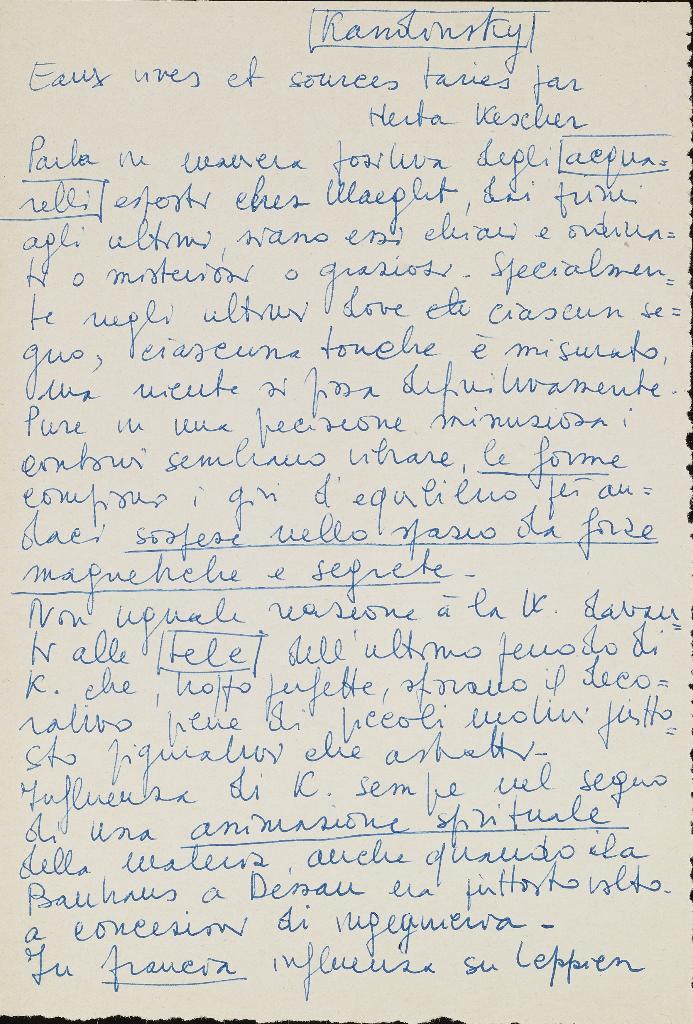 Kandinsky
Eaux vives et sources taries par
Herta Wescher
Parla in maniera positiva degli acqua=
relli esposti chez Maeght, dai primi
agli ultimi, siano essi chiari e ordina=
ti o misteriosi o graziosi. Specialmen=
te negli ultimi dove ciascun se=
gno, ciascuna touche è misurato,
ma niente si posa definitivamente.
Pure in una precisione minuziosa i
contorni sembrano vibrare, le forme
compiono i giri d'equilibrio più au=
daci sospese nello spazio da forze
magnetiche e segrete.
Non uguale reazione à la K. davan=
ti alle tele dell'ultimo periodo di
K. che, troppo perfette, sfiorano il deco=
rativo piene di piccoli motivi piutto=
sto figurativi che astratti.
Influenza di K. sempre nel segno
di una animazione spirituale
della materia, anche quando la
Bauhaus a Dessau era piuttosto volto
a concezioni di ingegneria.
In francia influenza su Leppien